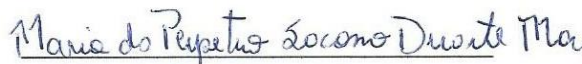 Maria do Perpetuo Socorro Duarte Mar